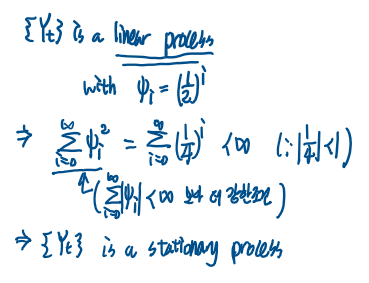 {Yt} is a linear process
with ψi = (1/2)^i
⇒ ∞Σi=0 ψi² = ∞Σi=0 (1/4)^i < ∞ (∵ |1/4| < 1)
( ∞Σi=0 |ψi| < ∞ 보다 더 강한조건 )
⇒ {Yt} is a stationary process